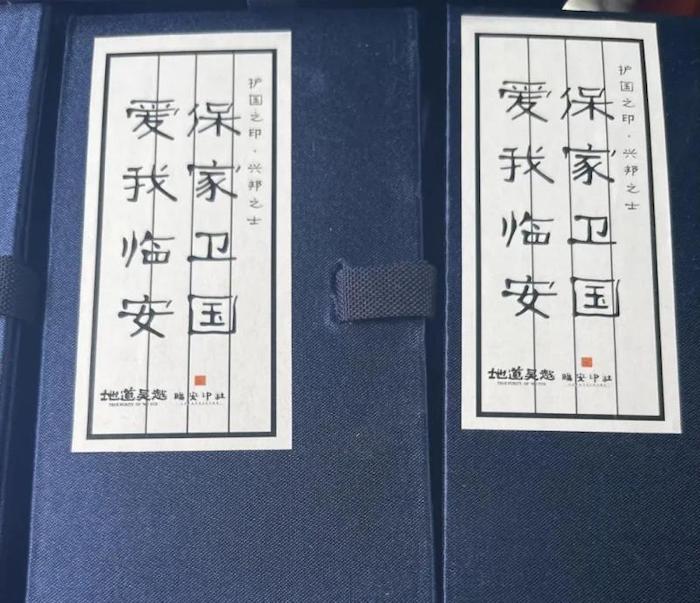 护国之印·兴邦之士
保家卫国
爱我临安
地道吴越
临安印社
护国之印·兴邦之士
保家卫国
爱我临安
地道吴越
临安印社